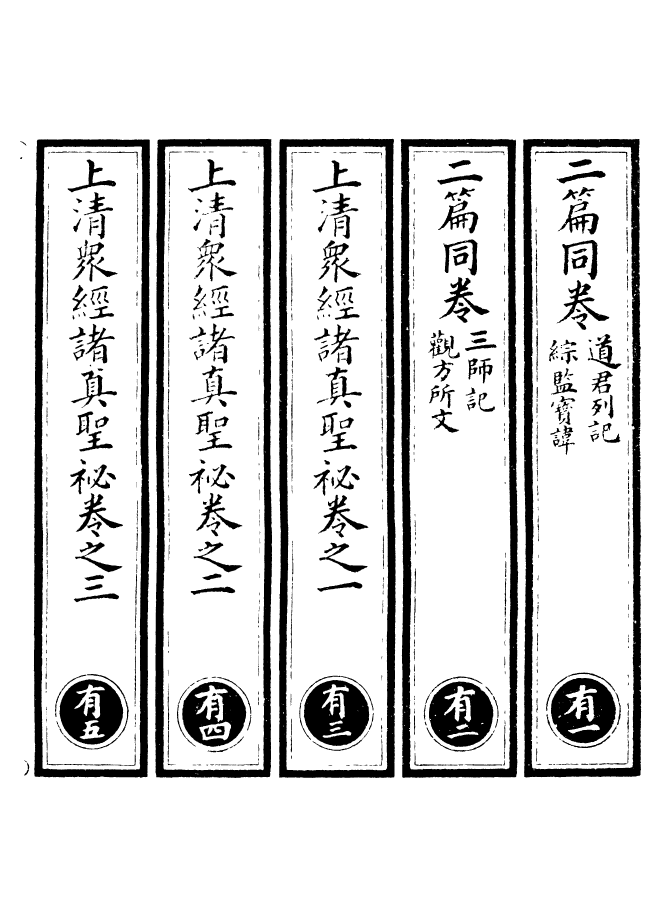 二篇同卷
道君列記
綜監寶諱
有一
二篇同卷
三師記
觀方所文
有二
上清衆經諸真聖祕卷之一
有三
上清衆經諸真聖祕卷之二
有四
上清衆經諸真聖祕卷之三
有五